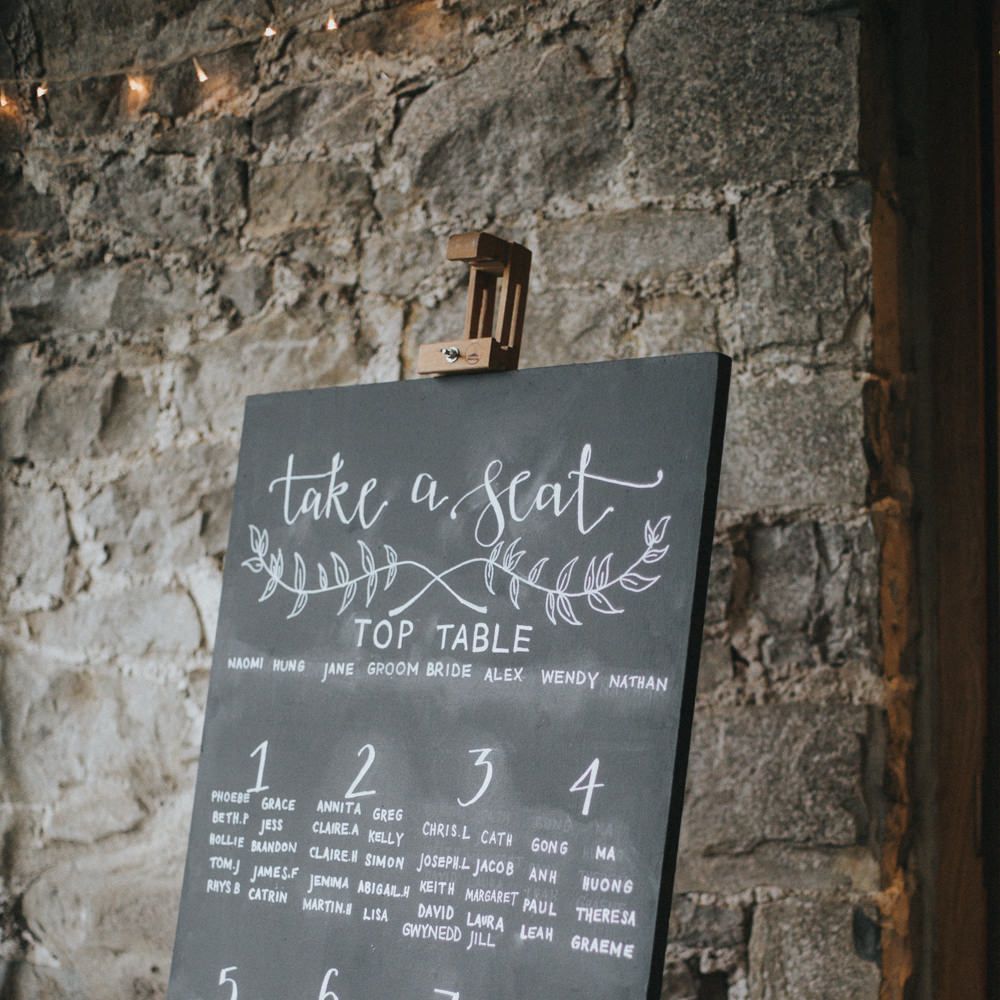 take a seat
TOP TABLE
NAOMI HUNG JANE GROOM BRIDE ALEX WENDY NATHAN
1
PHOEBE GRACE
BETH.P JESS
HOLLIE BRANDON
TOM.J JAMES.F
RHYS B CATRIN
2
ANNITA GREG
CLAIRE.A KELLY
CLAIRE.H SIMON
JEMMA ABIGAIL.H
MARTIN.H LISA
3
CHRIS.L CATH
JOSEPH.L JACOB
KEITH MARGARET
DAVID LAURA
GWYNEDD JILL
4
GONG MA
ANH HUONG
PAUL THERESA
LEAH GRAEME
5 6 7